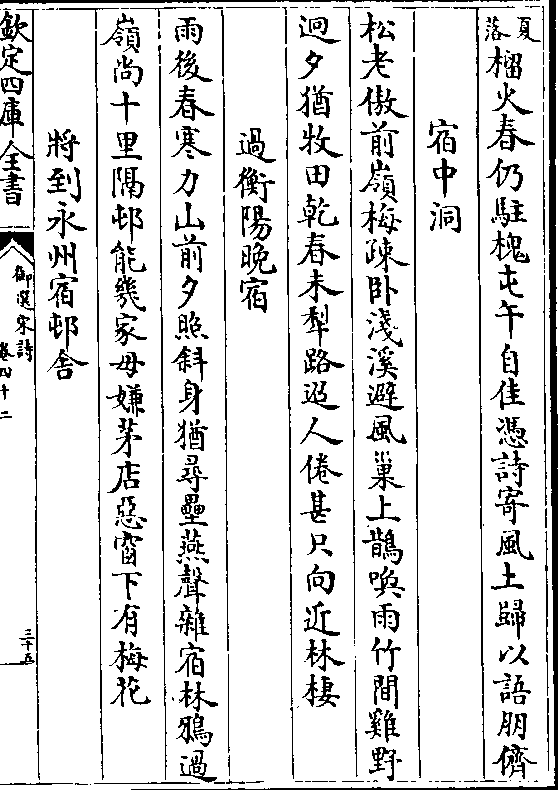 夏落榴火春仍駐槐屯午自佳憑詩寄風土歸以語朋儕
宿中洞
松老傲前嶺梅疎卧淺溪避風巢上鵲喚雨竹間雞野
迥夕猶牧田乾春未犁路迢人倦甚只向近林棲
過衡陽晚宿
雨後春寒力山前夕照斜身猶尋壘燕聲雜宿林鴉過
嶺尚十里隔邨能幾家毋嫌茅店惡窗下有梅花
將到永州宿邨舍
欽定四庫全書
御選宋詩
卷四十二
三十五